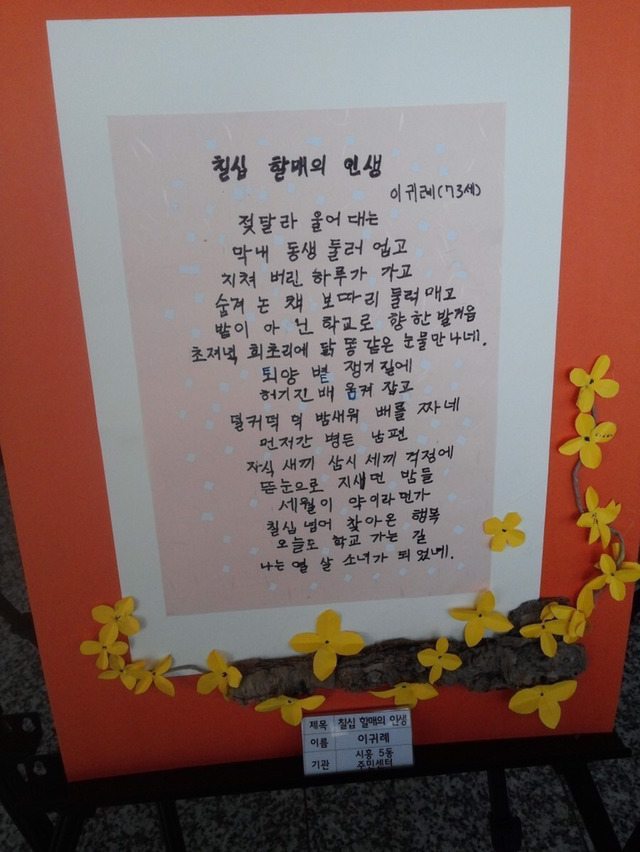 칠십 할매의 인생
이귀례(73세)
젖달라 울어 대는
막내 동생 둘러 업고
지쳐 버린 하루가 가고
숨겨 논 책 보따리 둘러 매고
밤이 아닌 학교로 향한 발거음
초저녘 회초리에 닭 똥 같은 눈물만 나네.
퇴양 볕 쟁기질에
허기진 배 움켜 잡고
덜커떡 떡 밤새워 베를 짜네
먼저간 병든 남편
자식 새끼 삼시 세끼 걱정에
뜬눈으로 지새면 밤들
세월이 약이라 먼가
칠십 넘어 찾아온 행복
오늘도 학교 가는 길
나는 열 살 소녀가 되었네.
제목 칠십 할매의 인생
이름 이귀례
기관 시흥 5동
주민센터